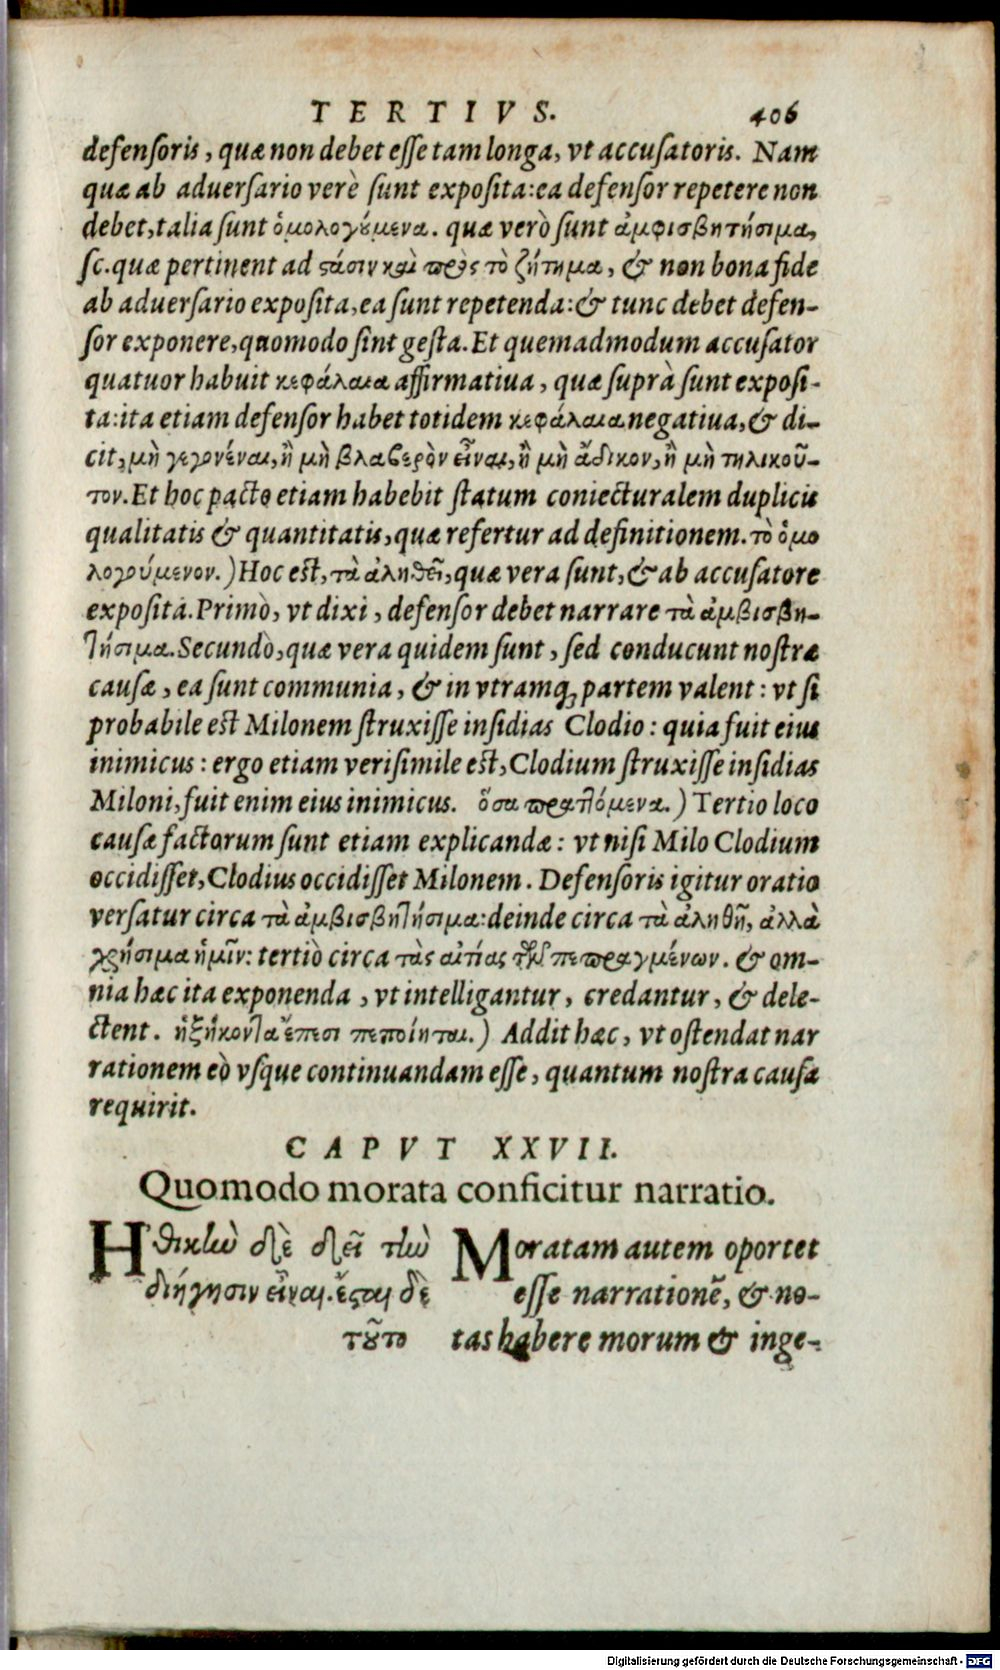 TERTIVS. 406
defensoris, quæ non debet esse tam longa, vt accusatoris. Nam
quæ ab aduersario verè sunt exposita: ea defensor repetere non
debet, talia sunt ὁμολογούμενα. quæ verò sunt ἀμφισβητήσιμα,
sc. quæ pertinent ad στάσιν καὶ πρὸς τὸ ζήτημα, & non bona fide
ab aduersario exposita, ea sunt repetenda: & tunc debet defen-
sor exponere, quomodo sint gesta. Et quemadmodum accusator
quatuor habuit κεφάλαια affirmatiua, quæ suprà sunt exposi-
ta: ita etiam defensor habet totidem κεφάλαια negatiua, & di-
cit, μὴ γεγονέναι, ἢ μὴ βλαβερὸν εἶναι, ἢ μὴ ἄδικον, ἢ μὴ τηλικοῦ-
τον. Et hoc pacto etiam habebit statum coniecturalem duplicis
qualitatis & quantitatis, quæ refertur ad definitionem. τὸ ὁμο
λογούμενον.) Hoc est, τὰ ἀληθεῖ, quæ vera sunt, & ab accusatore
exposita. Primò, vt dixi, defensor debet narrare τὰ ἀμβισβη-
τήσιμα. Secundò, quæ vera quidem sunt, sed conducunt nostræ
causæ, ea sunt communia, & in vtramq; partem valent: vt si
probabile est Milonem struxisse insidias Clodio: quia fuit eius
inimicus: ergo etiam verisimile est, Clodium struxisse insidias
Miloni, fuit enim eius inimicus. ὅσα πραττόμενα.) Tertio loco
causæ factorum sunt etiam explicandæ: vt nisi Milo Clodium
occidisset, Clodius occidisset Milonem. Defensoris igitur oratio
versatur circa τὰ ἀμβισβητήσιμα: deinde circa τὰ ἀληθῆ, ἀλλὰ
χρήσιμα ἡμῖν: tertiò circa τὰς αἰτίας τῶν πεπραγμένων. & om-
nia hæc ita exponenda, vt intelligantur, credantur, & dele-
ctent. ἡξήκοντα ἔπεσι πεποίηται.) Addit hæc, vt ostendat nar
rationem eò vsque continuandam esse, quantum nostra causa
requirit.
CAPVT XXVII.
Quomodo morata conficitur narratio.
Ἠθικὴν δὲ δεῖ τὴν
διήγησιν εἶναι. ἔσται δὲ
τοῦτο
Moratam autem oportet
esse narrationē, & no-
tas habere morum & inge-
Digitalisierung gefördert durch die Deutsche Forschungsgemeinschaft - DFG